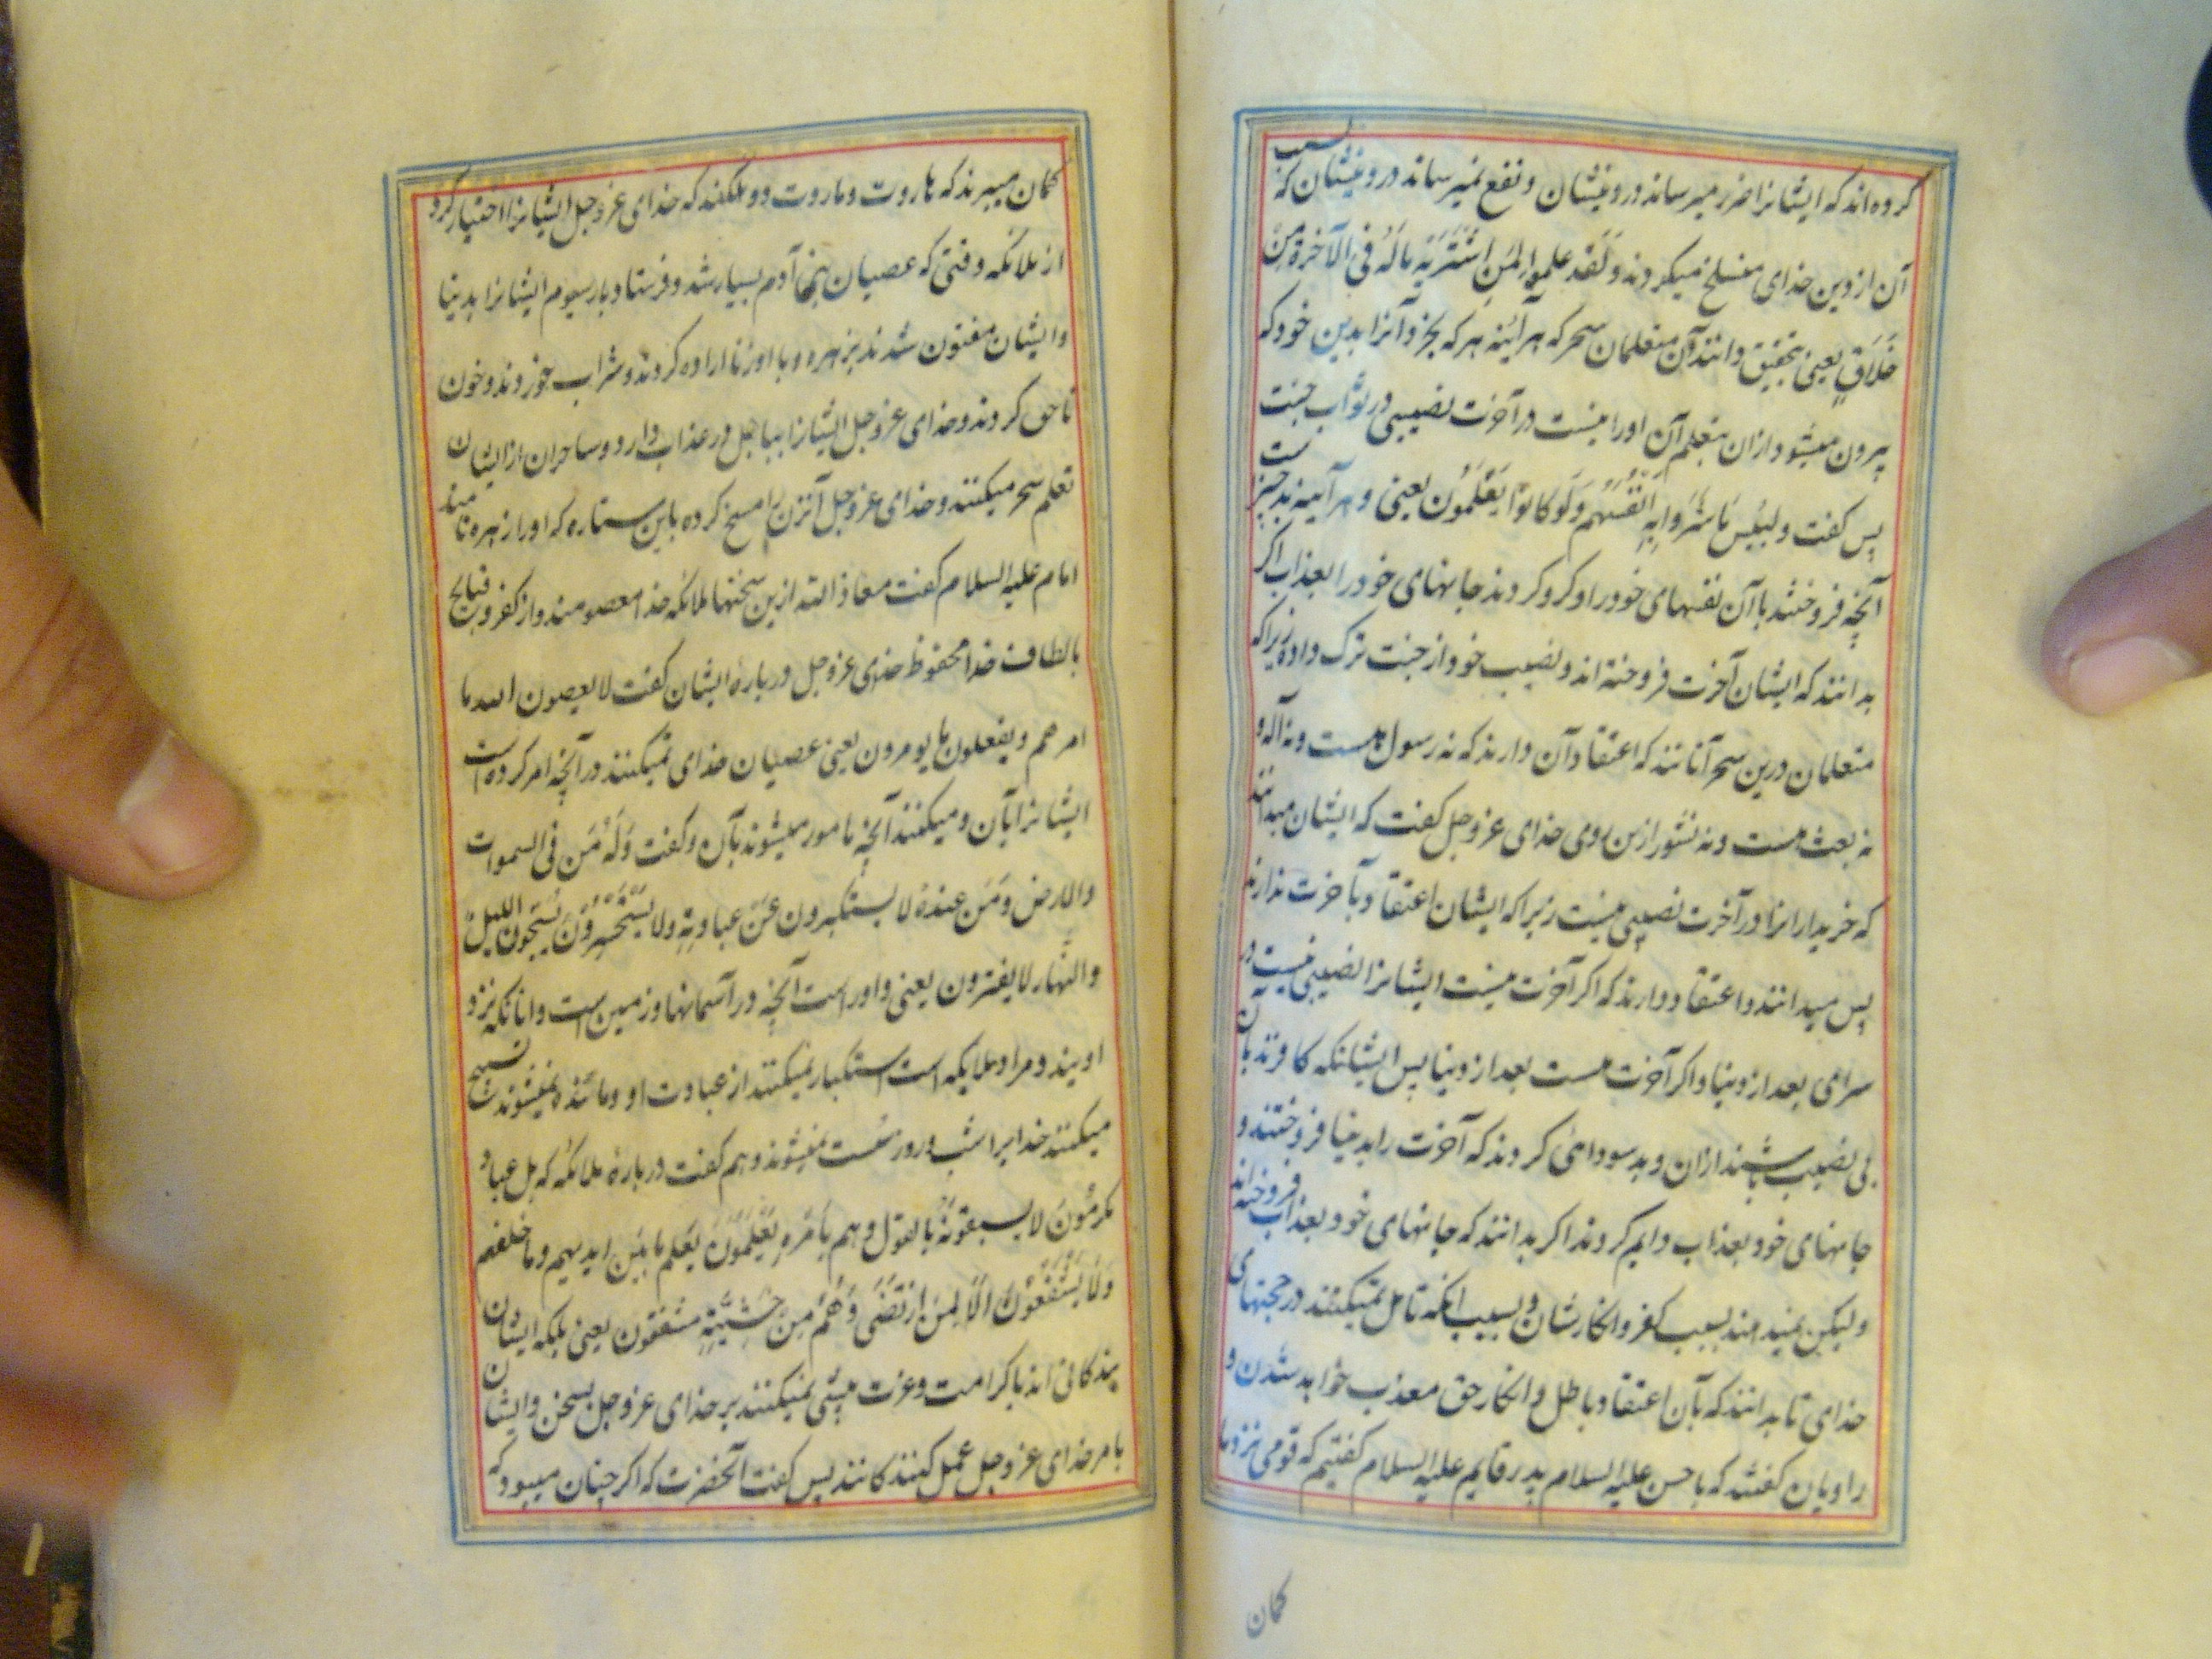 کرده اند که ایشانرا ضرر میرساند در دینشان و نفع نمیرساند در دینشان که بسبب
آن از دین خدای منسلخ میکردند وَلَقَد علموا لَمَنِ اشْتَرَیٰهُ مَا لَهُ فی الآخرة مِنْ
خَلَاقٍ یعنی بتحقیق دانند آن متعلمان سحر که هر آینه هر که بخرد آنرا بدین خود که
بیرون میشود از ان بتعلم آن اورا نیست در آخرت نصیبی در ثواب جنت
پس کفت ولبئس مَا شَرَوا بِهِ اَنْفُسَهُم وَلَو کَانُوا یَعْلَمُون یعنی و هر آینه بد چیزیست
آنچه فروختند باآن نفسهای خود را و کرو کردند جانهای خود را بعذاب اکر
بدانند که ایشان آخرت فروخته اند و نصیب خود از جنت ترک داده زیرا که
متعلمان درین سحر آنانند که اعتقاد آن دارند که نه رسول هست و نه آله و
نه بعث هست و نه نشور ازین روی خدای عز وجل کفت که ایشان میدانند
که خریدارانرا در آخرت نصیبی نیست زیرا که ایشان اعتقاد بآخرت ندارند
پس میدانند و اعتقاد دارند که اکر آخرت نیست ایشانرا نصیبی نیست در
سرای بعد از دنیا و اکر آخرت هست بعد از دنیا پس ایشانکه کافرند بآن
بی نصیب باشند ازان و بد سودائی کردند که آخرت را بدنیا فروختند و
جانهای خود بعذاب دایم کردند اکر بدانند که جانهای خود بعذاب فروخته اند
ولیکن نمیدانند بسبب کفر و انکارشان و بسبب انکه تامل نمیکنند در حجتهای
خدای تا بدانند که بآن اعتقاد باطل و انکار حق معذب خواهد شدن و
راویان کفتند که با حسن علیه السلام پدر قایم علیه السلام کفتیم که قومی نزد ما
کمان
کمان میبرند که هاروت و ماروت دو ملکند که خدای عز وجل ایشانرا اختیار کرد
از ملائکه وقتی که عصیان بنی آدم بسیار شد و فرستاد با سیوم ایشانرا بدنیا
و ایشان مفتون شدند بزهره و با او زنا اراده کردند و شراب خوردند و خون
ناحق کردند و خدای عز وجل ایشانرا ببابل در عذاب دارد و ساحران از ایشان
تعلم سحر میکنند و خدای عز وجل آنزن را مسخ کرده باین ستاره که اورا زهره نامند
امام علیه السلام کفت معاذ الله ازین سخنها ملائکه خدا معصومند و از کفر و قبایح
بالطاف خدا محفوظ خدای عز وجل در بارهٔ ایشان کفت لا یعصون الله ما
امرهم و یفعلون ما یومرون یعنی عصیان خدای نمیکنند در آنچه امر کرده است
ایشانرا بآن و میکنند آنچه مامور میشوند بآن و کفت وَلَهُ مَن فی السموات
والارض وَمَن عندهُ لا یستکبرون عَن عبادتِهِ ولا یَسْتَحْسِرُونَ یُسَبّحون اللیل
والنّهار لا یفترون یعنی و اوراست آنچه در آسمانها و زمین است و انانکه نزد
اویند و مراد ملایکه است استکبار نمیکنند از عبادت او و مانده نمیشوند تسبیح
میکنند خدایرا شب و روز سست نمیشوند و هم کفت در بارهٔ ملائکه که بل عباد
مکرمُونَ لا یسبقونَهُ بالقول و هم باَمْرِهِ یَعْمَلُونَ یَعْلم مَا بَیْن ایدیهم وما خلفهم
وَلَا یَشْفَعُونَ الّا لِمَن ارْتَضَی وَ هُمْ مِنْ خَشْیَتِهِ مشفقون یعنی بلکه ایشان
بندکانی اند با کرامت و عزت پیشی نمیکنند بر خدای عز وجل بسخن و ایشان
بامر خدای عز وجل عمل کنندکانند پس کفت آنحضرت که اکر چنان میبود که